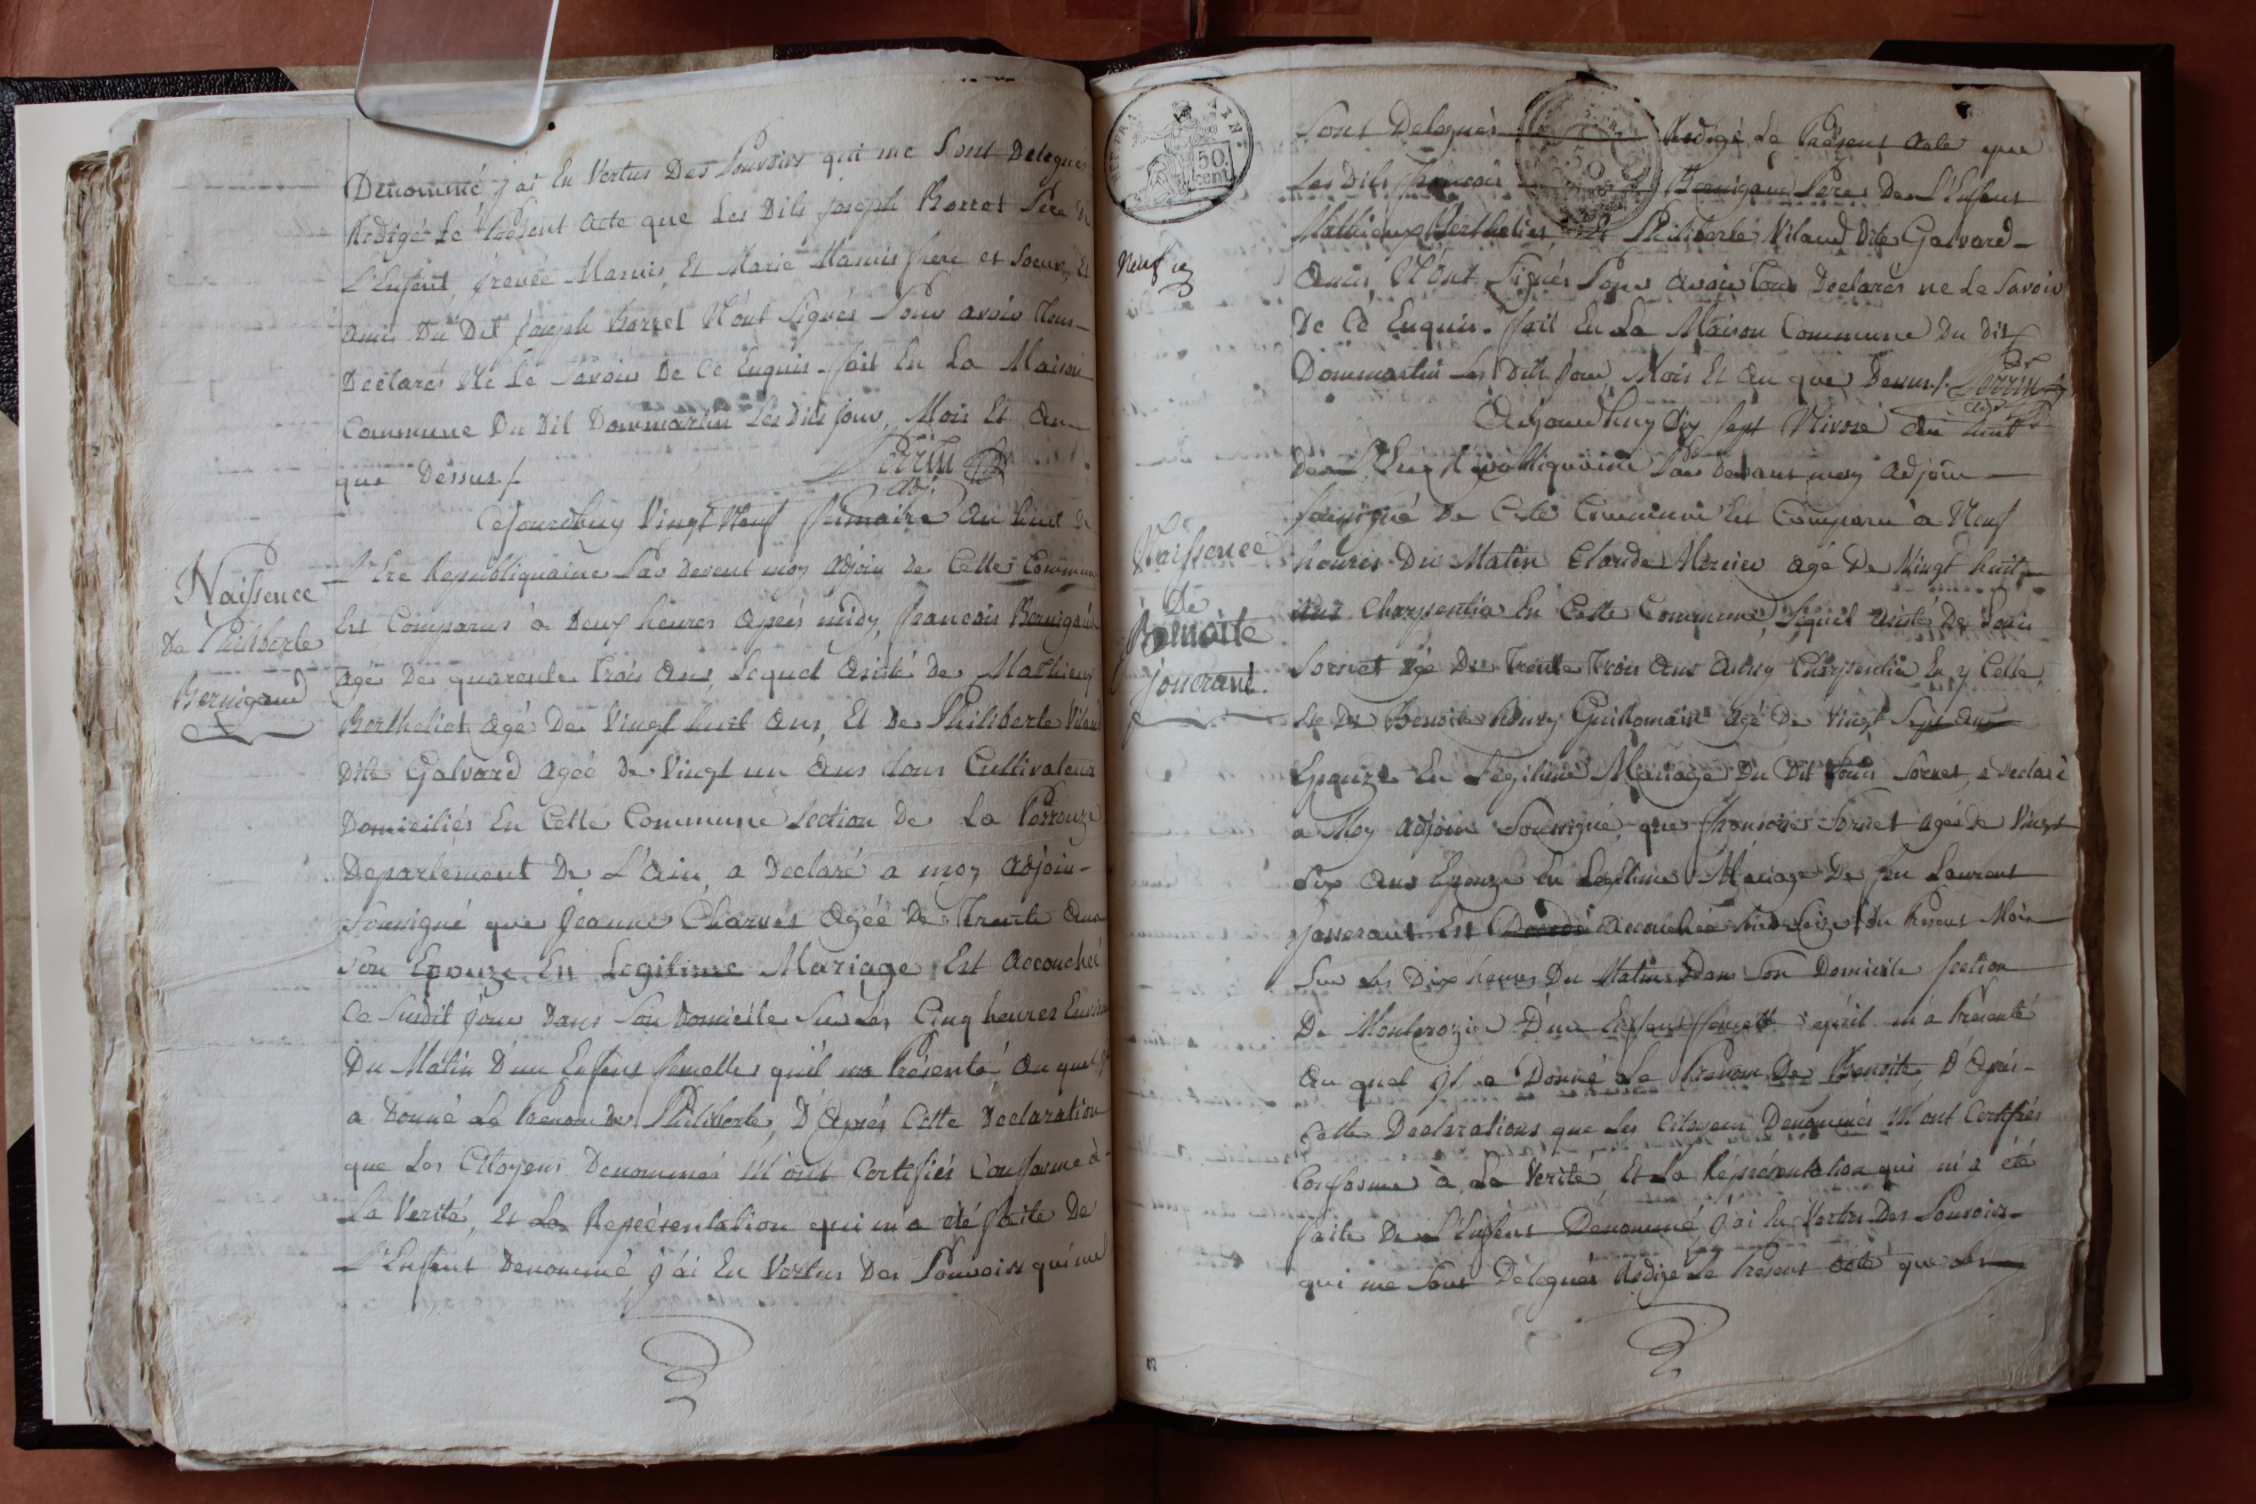 Denommé j'ai En Vertus Des Pouvoirs qui me Sont Delegués
Redigé Le Présent Acte que Les Dits joseph Borret Père de
L'Enfent, frenée Mamis, Et Marie Mamis frere et Soeur, Et
Amis Du Dit joseph Borret N'ont Signés Pour avoir Tous
Déclarés Ne Le Savoir De Ce Enquis. fait En La Maison
Commune Du Dit Dommartin Les Dits jour, Mois Et An
que Dessus /. Perrin
adj.
Cejourdhuy Vingt Neuf frimaire An huit De
L'Ere Republiquaine Par devent moy Adjoin de Cette Commune
Naissence
De Philiberte
Bernigaud
Est Comparus à Deux heures Après midy, francois Bernigaud
Agé De quarente trois Ans, Lequel Asisté de Mathieux
Berthelier Agé De Vingt huit Ans, Et De Philiberte Vilaud
Dite Galvard Ageé de Vingt un Ans tous Cultivateurs
Domiciliés En Cette Commune Section De La Perrouze
Departement De L'Ain, a Declaré a moy Adjoin
Sousigné que Jeanne Charves Ageé De Trente Ans
Son Epouze En Legitime Mariage, Est Accouchée
Ce Susdit jour Dans Son Domicille Sur Les Cinq heures Environ
Du Matin D'un Enfens femelle, qu'il ma Présenté, Au quel jl
a Donné Le Prenom De Philiberte, D'Après Cette Declaration
que Les Citoyens Denommés M'ont Certifiés Conforme à
La Verité, Et La Représentation qui m'a été faite De
L'Enfent Denommé, j'ai En Vertus Des Pouvoirs qui me
50
cent.
Neuf
Sont Delegués Redigé Le Présent Acte que
Les Dits francois Bernigaud Père De L'Enfent
Mathieux Berthelier, Et Philiberte Vilaud Dite Galvard
Amis, N'ont Signés Pour Avoir tous Declarés ne Le Savoir
De Ce Enquis. fait En La Maison Commune Du Dit
Dommartin Les Dits jour, Mois Et An que Dessus /. Perrin
adj.
Cejourdhuy dix sept Nivose An huit
De L'Ere Republiquaine Par devant moy Adjoin
Sousigné De Cette Commune Est Comparu à Neuf
Naissence
De
Benoite
jonerant
heures Du Matin Claude Mercier Agé De Vingt huit
ans Charpentier En Cette Commune, Lequel Asisté De Louis
Sornet Agé De Trente Trois Ans Aussy Charpentier En y Celle,
Et De Benoite Guillomain Agé De Vingt Sept Ans
Epouze En Legitime Mariage Du Dit Louis Sornet, a Declaré
a Moy Adjoin Sousigné que francoise Sornet Ageé De Vingt
Six Ans Epouze En Legitime Mariage De feu Laurent
Jonerant Est Accouchée Seize Du Présent Mois
Sur Les Dix heures Du Matin Dans Son Domicile Section
De Monterozier D'un Enfent femelle qu'il m'a Présenté
Au quel jl a Donné Le Prenom De Benoite, D'Après
Cette Declarations que Les Citoyens Denommés M'ont Certifiés
Conforme à La Verité, Et La Représentation qui m'a été
faite De L'Enfens Denommé, j'ai En Vertus Des Pouvoirs
qui me Sont Délegués Redigé Le Présent Acte que Les